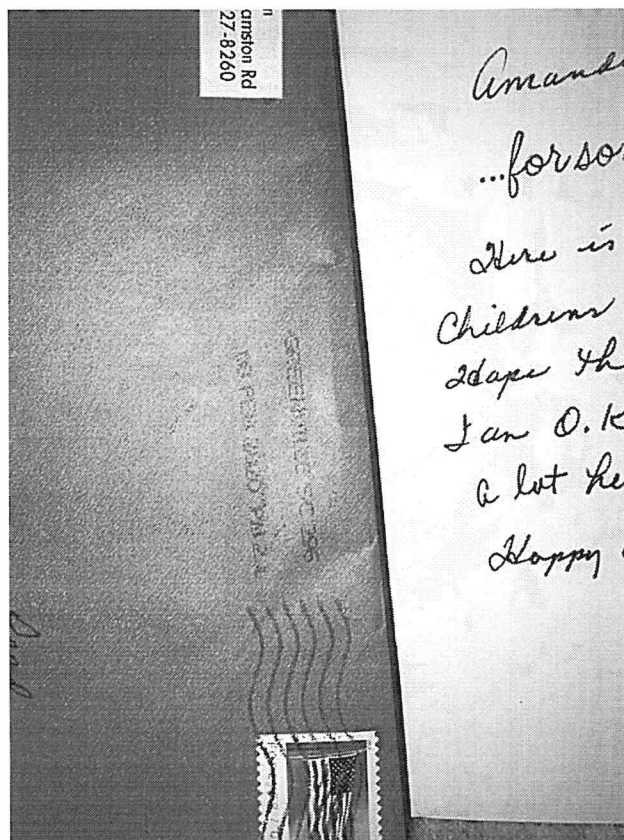 n
amston Rd
27-8260
GREENVILLE SC 296
Amand
...for so
Here is
Childrens
Hope th
I am O.K
a lot he
Happy